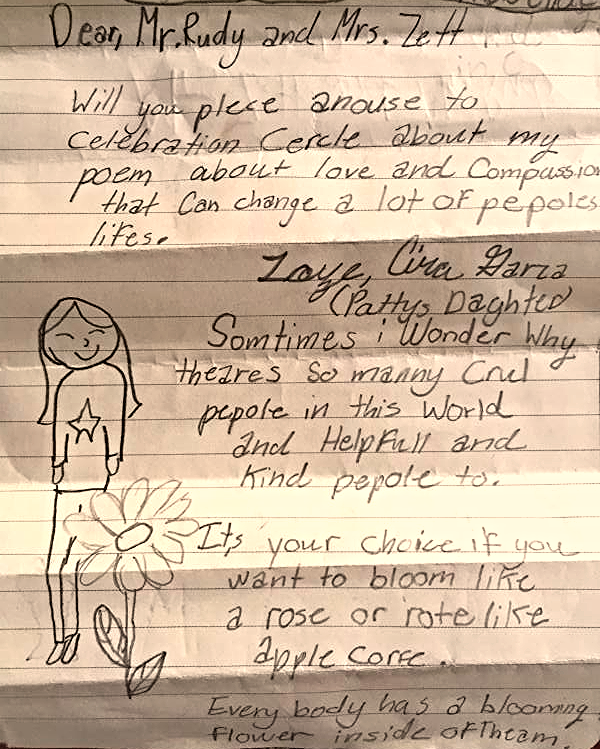 Dear, Mr. Rudy and Mrs. Zett
Will you plece anouse to
Celebration Cercle about my
poem about love and Compassion
that Can change a lot of pepoles
lifes.
Love, Cira Garza
(Pattys Daghter)
Somtimes i Wonder Why
theares So manny Crul
pepole in this World
and HelpFull and
Kind pepole to.
Its your choice if you
want to bloom like
a rose or rote like
apple corfe.
Every body has a blooming
flower inside of Theam